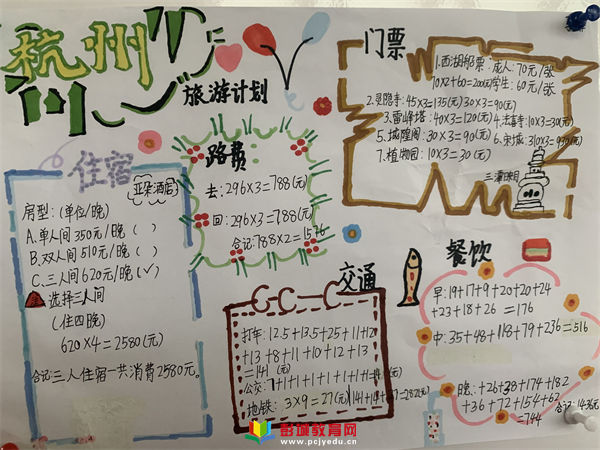 杭州
旅游计划
住宿
亚朵酒店
房型:(单位/晚)
A.单人间350元/晚( )
B.双人间510元/晚( )
C.三人间620元/晚(✓)
选择三人间
(住四晚)
620×4=2580(元)
合记:三人住宿一共消费2580元。
路费:
去:296×3=788(元)
回:296×3=788(元)
合记:788×2=1576
门票
1.西湖船票:成人:70元/张
10×2+60=200元 学生:60元/张
2.灵隐寺:45×3=135(元) 30×3=90(元)
3.雷峰塔:40×3=120(元) 4.法喜寺:10×3=30(元)
5.城隍阁:30×3=90(元) 6.宋城:310×3=930(元)
7.植物园:10×3=30(元)
三潭映月
交通
打车:12.5+13.5+25+11+12
+13+8+11+10+12+13
=141(元)
公交:
地铁:3×9=27(元)
餐饮
早:19+17+9+20+20+24
+23+18+26=176
中:35+48+118+79+236=516
晚:+26+38+174+182
+36+72+154+62
=744
合记:1436元
彭城教育网
www.pcjyedu.cn